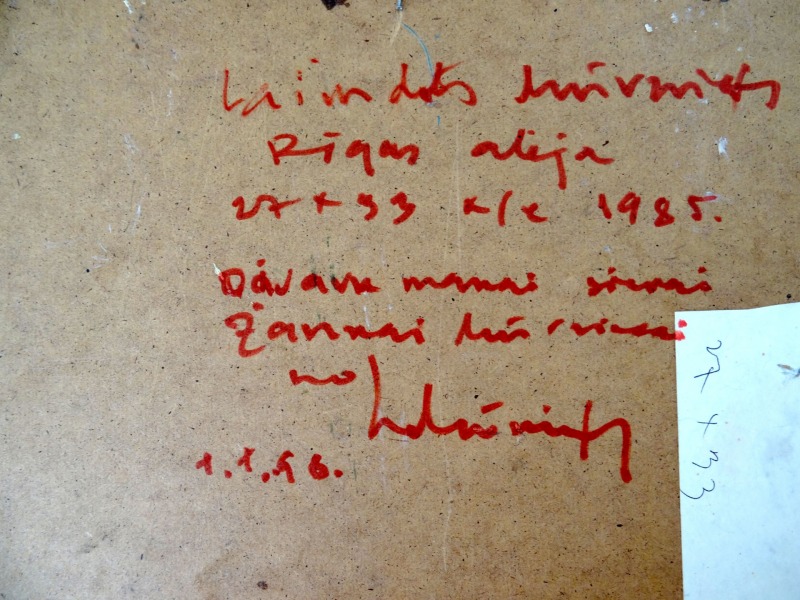 Laimdots Mūrnieks
Rīgas aleja
27 x 33 k/e 1985.
Dāvanu manai sievai
Žannai Mūrniecei
no LMūrnieks
1.1.96.
27 x 33